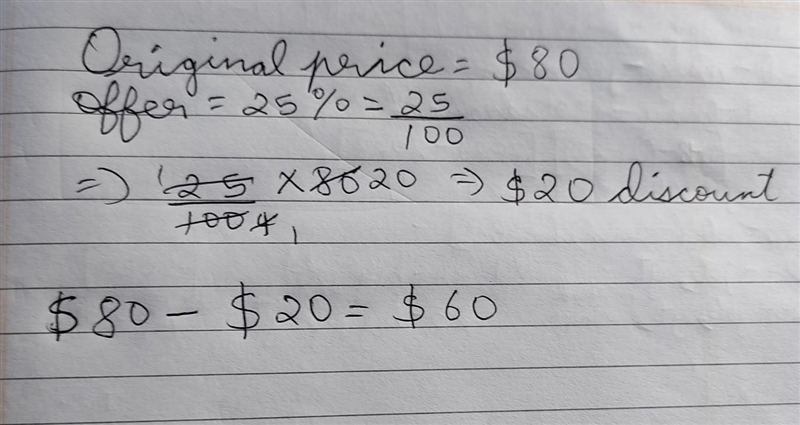 Original price = $80
offer = 25% = 25/100
=> 1 25/100 4 1 × 80 20 => $20 discount
$80 - $20 = $60